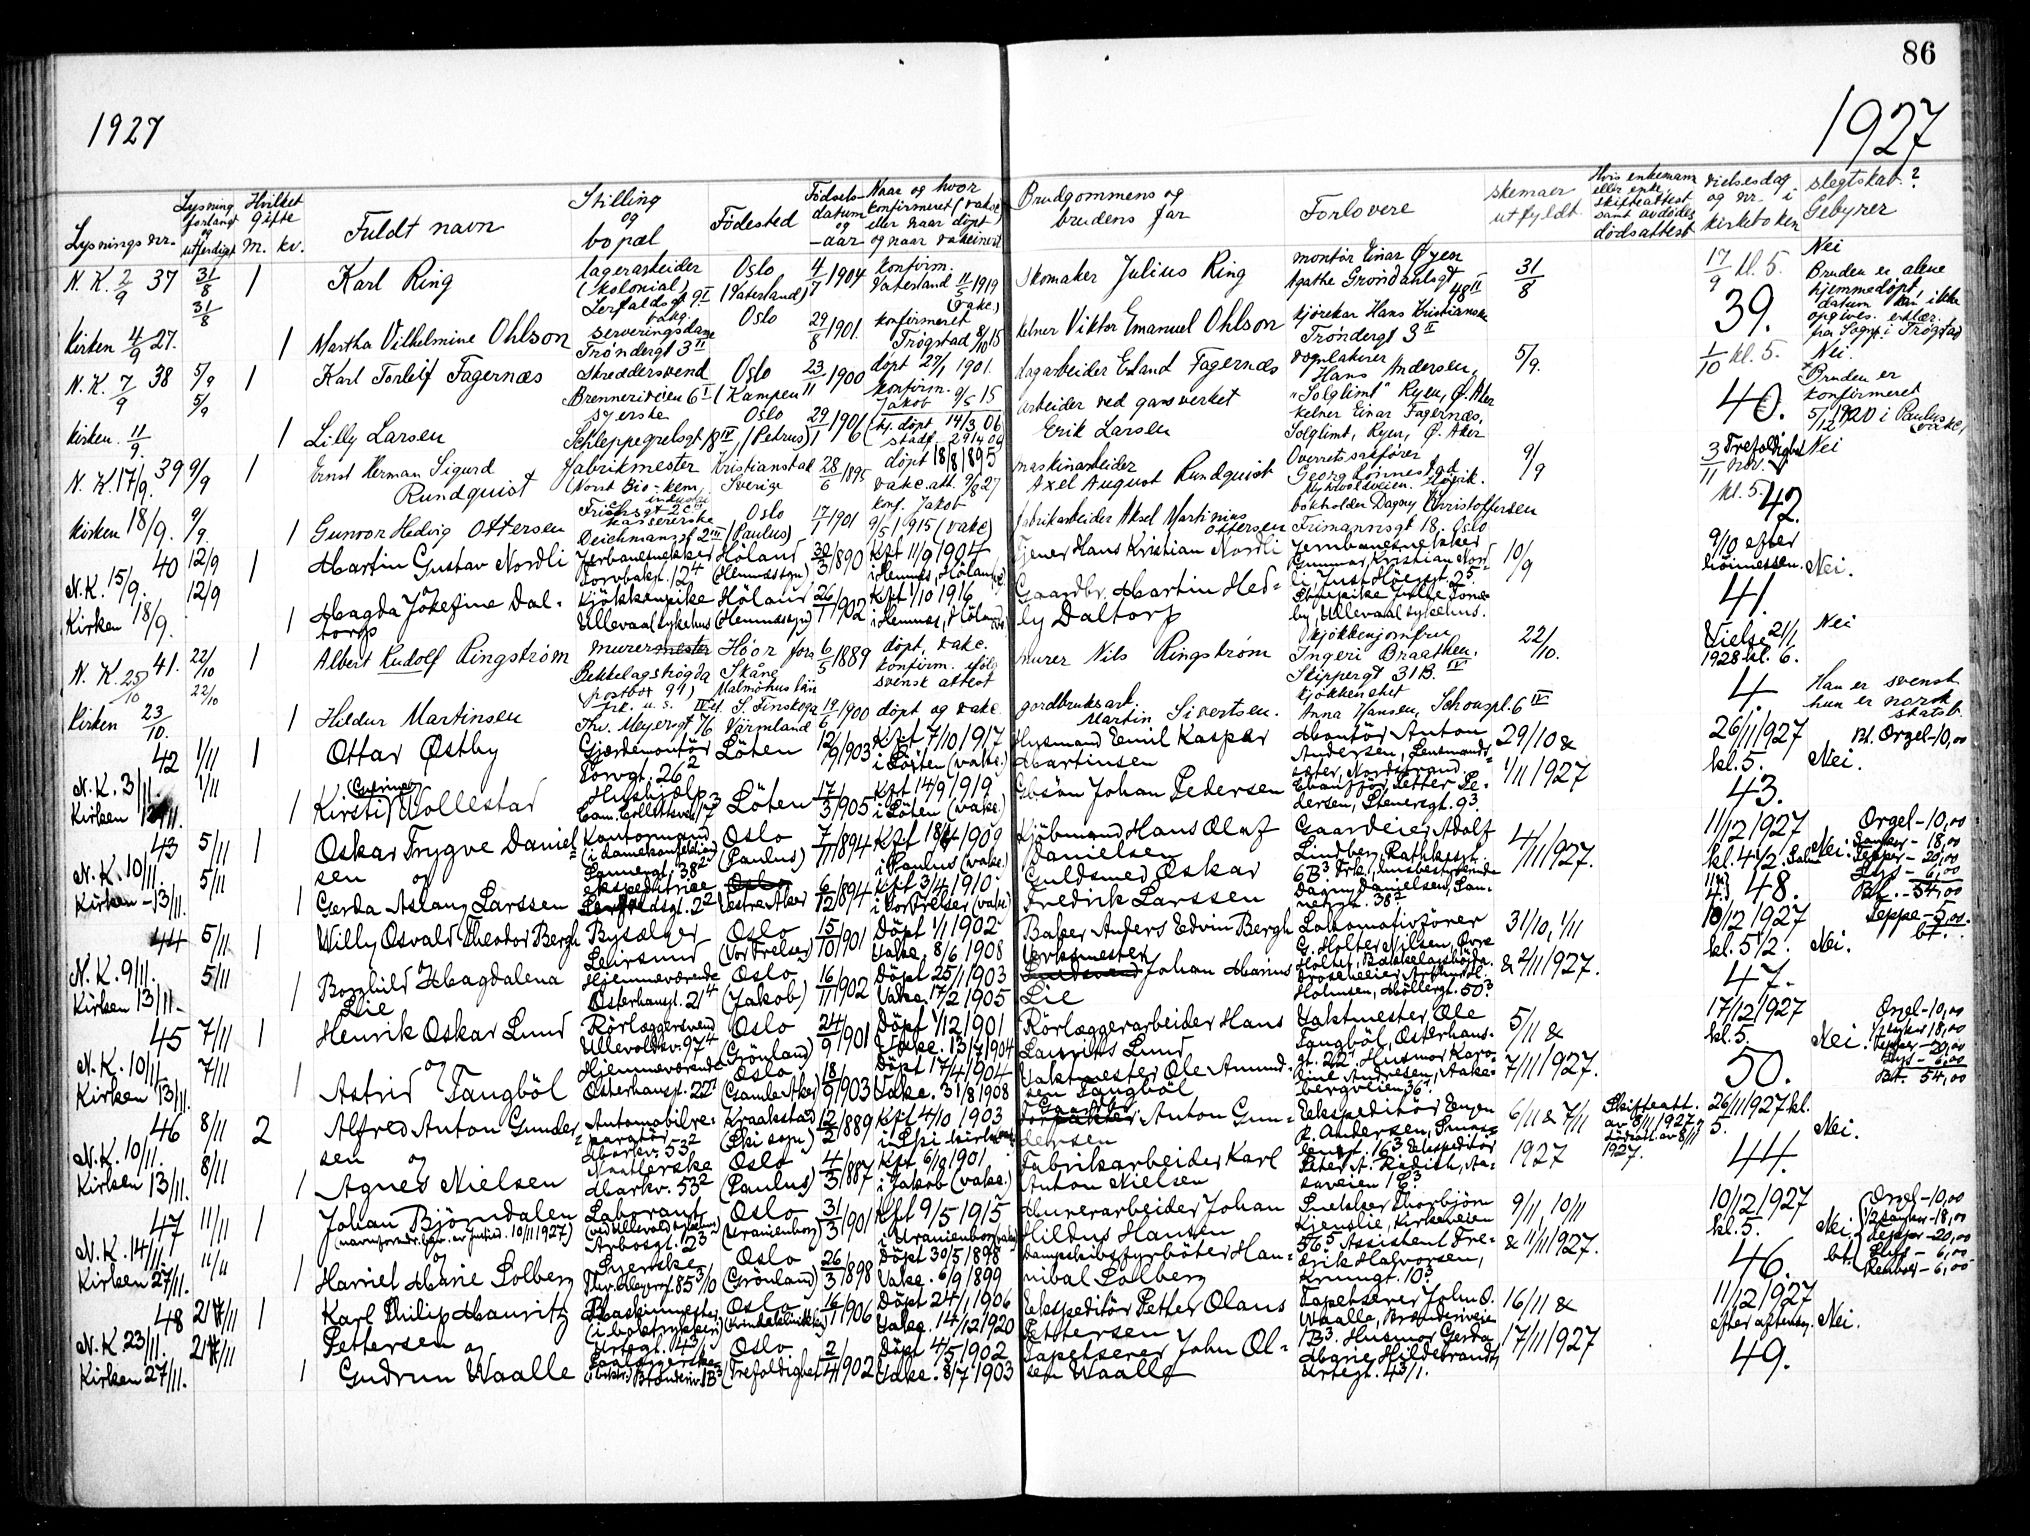 86
1927
1927
Lysnings nr.
Lysning forlangt og utferdiget
Hvilket gifte
m. kv.
Fuldt navn
Stilling og bopæl
Födested
Födsels-datum og -aar
Naar og hvor konfirmeret (vakc.) eller naar döpt og naar vakcinert
Brudgommens og brudens far
Forlovere
skemaer utfyldt
Hvis enkemann eller enke, skifteattest samt avdödes dödsattest
vielsesdag og nr. i kirkeboken
slegtskab?
Gebyrer
N. K. 2/9 37 31/8 1 Karl Ring
lagerarbeider (kolonial)
Oslo (Vaterland)
4/7 1904
konfirm. Vaterland 11/5 1919 (vakc.)
skomaker Julius Ring
montör Einar Øyen
Agathe Gröndahlsgt 48 II
31/8
17/9 kl. 5.
39.
Nei
Bruden er alene hjemmedöpt, datum kan ikke opgives.
Kirken 4/9 27. 31/8 1 Martha Vilhelmine Ohlson
serveringsdame Tröndergt 3 II
Oslo
29/8 1901.
konfirmeret Trögstad 8/10 15
kelner Viktor Emanuel Ohlson
kjörekar Hans Kristiansen
Tröndergt 3 II
N. K. 7/9 38 5/9 1 Karl Torleif Fagernæs
Skreddersvend
Brenneriveien 6 I
Oslo (Kampen
23/11 1900
döpt 27/1 1901.
konfirm. Jakob 9/5 15
dagarbeider Erland Fagernæs
vognlakerer Hans Andersen,
"Solglimt" Ryen, Ø. Aker
5/9.
1/10 kl. 5.
40.
Nei.
Bruden er konfirmeret 5/12 1920 i Paulus (vakc.)
kirken 11/9. 5/9 1 Lilly Larsen
syerske
Schleppegrelsgt 18 IV
Oslo (Petrus)
29/1 1906
hj. döpt 14/3 06
arbeider ved gasverket Erik Larsen
kelner Einar Fagernæs,
Solglimt, Ryen, Ø. Aker
N. K. 17/9. 39 9/9 1 Ernst Herman Sigurd Rundquist
fabrikmester
Norsk Bio-kem. industri
Kristianstad Sverige
28/6 1895
döpt 18/8 1895
vakc. att. 9/8 27
maskinarbeider Axel August Rundquist
Overretssakförer
9/9
3/11 Trefoldighet
kl. 5.
42.
Nei
kirken 18/9. 9/9. 1 Gunvor Hedvig Ottersen
kassererske Deichmansgt 2 III
Oslo (Paulus)
17/1 1901
konf. Jakob 9/5 1915 (vakc)
fabrikarbeider Aksel Martinius Ottersen
bokholder Dagny Christoffersen
Frimannsgt 18. Oslo
N. K. 15/9. 40 12/9 1 Martin Gustav Nordli og
Jernbanesnekker
Torvbakgt. 12 4
Höland (Hemnes sogn)
30/3 1890
Kft 11/9 1904 i Hemnes, Höland
Tjener Hans Kristian Nordli
Jernbanesnekker Gunnar Kristian Nordli, Just Höegsgt. 25.
10/9
9/10 efter höimessen.
41.
Nei.
Kirken 18/9. 12/9 1 Magda Josefine Daltorp
Kjökkenpike Ullevaal sykehus
Höland (Hemnes sogn)
26/1 1902
Kft 1/10 1916 i Hemnes, Höland
Gaardbr. Martin Hedley Daltorp
Ullevaal sykehus.
N. K. 25/10 41. 22/10 1 Albert Rudolf Ringström
murermester
Bekkelagshögda postbox 91)
Höör fors. Skåne Malmöhus län
6/5 1889
döpt, vakc. konfirm. ifölge svensk attest
murer Nils Ringström
kjökkenjomfru Ingeri Braathen.
Skippergt 31 B. IV
22/10.
Vielse 21/1 1928 kl. 6.
4.
Nei
Han er svensk
hun er norsk statsb.
Kirken 23/10. 22/10 1 Hildur Martinsen
Thv. Meyersgt 76
Värmland
19/6 1900
döpt og vakc.
gardbruksarb. Martin Sivertsen.
kjökkenchef Anna Hansen, Schouspl. 6 IV
N. K. 3/11. 42 1/11 1 Ottar Østby
Gjærdemontör
Torvgt. 26 2
Löten
12/9 1903
Kft 7/10 1917 i Löten (vakc.)
Husmand Emil Kasper Martinsen
Montör Anton Andersen,
29/10 & 1/11 1927
26/11 1927 kl. 5.
43.
Nei.
Bt. Orgel-10,00
Kirken 13/11. 1/11 1 Kirsti Vollestad
Hushjælp
Cam. Collettsvei 17 3
Löten
17/3 1905
Kft 14/9 1919 i Löten (vakc.)
Gbsön Johan Pedersen
Petter Pedersen, Stenersgt. 9 3
N. K. 10/11. 43 5/11 1 Oskar Trygve Danielsen og
Kontormand (i damekonfektion)
Sannergt. 38 2
Oslo (Paulus)
7/11 1894
Kft 18/4 1909 i Paulus (vakc.)
Kjöbmand Hans Oluf Danielsen
Gaardeier Adolf Lindberg, Rathkesgt. 6 B 3
4/11 1927.
11/12 1927 kl. 4 1/2.
48.
Nei.
Orgel-10,00
Tepper-20,00
Lys-6,00
Bt.-54,00
Kirken-13/11. 5/11 1 Gerda Aslaug Larssen
ekspeditrice
Vestre Aker
6/12 1894
Kft 3/4 1910 i Vor Frelser (vakc)
Guldsmed Oskar Fredrik Larssen
Dagny Danielsen, Sannergt. 38 2
N. K. 9/11. 44 5/11 1 Willy Osvald Theodor Bergh og
Bysælger
Leirsund
Oslo (Vor Frelser)
15/10 1901
Döpt 1/1 1902
Vakc. 8/6 1908
Baker Anders Edvin Bergh
Lokomotivförer G. Holter Nilsen,
31/10, 1/11 & 2/11 1927.
10/12 1927 kl. 5 1/2.
47.
Nei.
Teppe-5,00.
bt.
Kirken 13/11. 5/11 1 Borghild Magdalena Lie
Hjemmeværende
Osterhausgt. 21 4
Oslo (Jakob)
16/11 1902
Döpt 25/1 1903
Vakc. 17/2 1905
Verksmester Johan Marius Lie
Holmsen, Möllergt. 50 3
N. K. 10/11. 45 7/11 1 Henrik Oskar Lund og
Rörlæggersvend
Ullevoldsv. 97 4
Oslo (Grönland)
24/9 1901
Döpt 1/12 1901
Vakc. 13/7 1904
Rörlæggerarbeider Hans Lauritis Lund
Vaktmester Ole Tangböl, Osterhausgt. 22
5/11 & 7/11 1927.
17/12 1927 kl. 5.
50.
Nei.
Orgel-10,00
18,00
Tepper-20,00
Lys-6,00
Bt. 54,00
Kirken 13/11. 7/11 1 Astrid Tangböl
Hjemmeværende
Osterhausgt. 22
Oslo (Gamle Aker)
18/9 1903
Döpt 17/4 1904
Vakc. 31/8 1908
Vaktmester Ole Amundsen Tangböl
Husmor Karoline Andresen, Aakebergveien 36
N. K. 10/11. 46 8/11 2 Alfred Anton Gundersen og
Automobilreparatör
Markv. 53 2
Kraakstad (Ski sogn)
12/2 1889
Kft 4/10 1903 i Ski kirke
Anton Gundersen
Ekspeditör
6/11 & 7/11 1927
Skifteatt. av 8/11 1927, dödsatt. av 8/11 1927.
26/11 1927 kl. 5.
44.
Nei.
Kirken 13/11. 8/11 1 Agnes Nielsen
Markv. 53 2
Oslo (Paulus)
4/3 1887
Kft 6/10 1901 i Jakob (vakc.)
Fabrikarbeider Karl Anton Nielsen
N. K. 14/11. 47 11/11 1 Johan Björndalen og
Laborant
Arbosgt. 2 3
Oslo (Uranienborg)
31/3 1901
Kft 9/5 1915 i Uranienborg (vakc)
Murerarbeider Johan Hildus Hansen
Snekker Thorbjörn Kjenslie, Kirkeveien 56 5
9/11, 10/11 & 11/11 1927.
10/12 1927 kl. 5.
46.
Nei.
bt.
Orgel-10,00
1/2 dusker-18,00
Tepper-20,00
Lys-6,00
Renhold-6,00
Kirken 27/11. 11/11 1 Harriet Marie Solberg
Syerske
Thv. Meyersgt. 85 3/10
Oslo (Grönland)
26/3 1898
Döpt 30/5 1898
Vakc. 6/9 1899
Dampskibsfyrböter Hannibal Sollberg
Assistent Fredrik Halvorsen,
Krumgt. 10 3
N. K. 23/11. 48 21/11 1 Karl Philip Mauritz Pettersen og
Maskinmester (i boktrykkeri)
Urtegt. 43/1
Oslo
16/1 1906
Döpt 24/1 1906
Vakc. 14/12 1920
Ekspeditör Petter Olaus Pettersen
Tapetserer John O. Waalle, Brenneriveien 1 B 3.
16/11 & 17/11 1927
11/12 1927 efter aftensg.
49.
Nei.
Kirken 27/11. 21/11 1 Gudrun Waalle
Oslo (Trefoldighet)
2/4 1902
Döpt 4/5 1902
Vakc. 8/7 1903
Tapetserer John Olsen Waalle
Husmor Gerda Marie Hildebrandt,
Urtegt. 43/1.